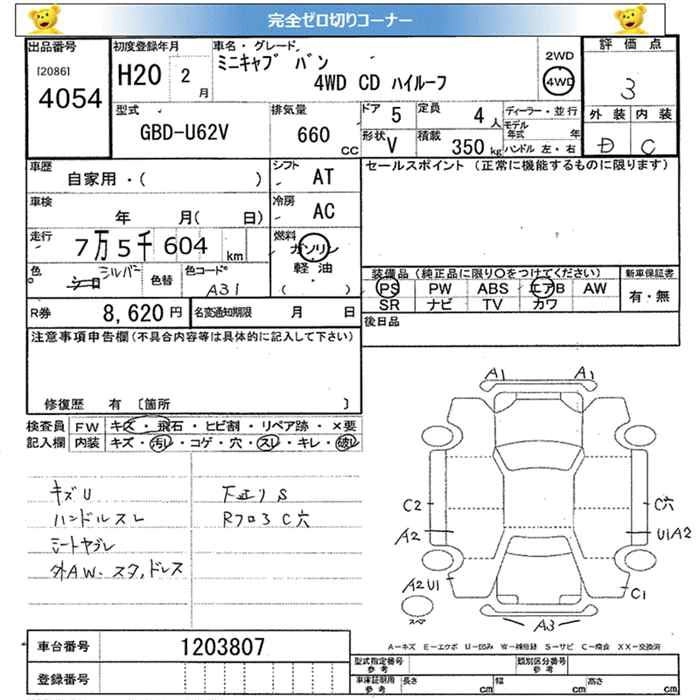 完全ゼロ切りコーナー
出品番号 初度登録年月 車名・グレード 評価点
[2086] 4054 H20 2月 ミニキャブ バン 2WD 3
4WD CD ハイルーフ 4WD
型式 排気量 ドア 5 定員 4人 ディーラー・並行 外装 内装
GBD-U62V 660 CC 形状 V 積載 350kg モデル年式 年 D C
ハンドル 左・右
車歴 自家用・( ) シフト AT セールスポイント (正常に機能するものに限ります)
車検 年 月( 日) 冷房 AC
走行 7万5千604 km 燃料 ガソリン
軽油
( )
色 シロ シルバー 色替 色コード A31
装備品(純正品に限り○をつけてください) 新車保証書
PS PW ABS エアB AW 有・無
SR ナビ TV カワ
R券 8,620円 名変通知期限 月 日 後日品
注意事項申告欄(不具合内容等は具体的に記入して下さい)
修復歴 有 〔箇所 〕
検査員記入欄 FW キズ・飛石・ヒビ割・リペア跡・×要
内装 キズ・汚レ・コゲ・穴・スレ・キレ・破レ
キズU 下廻りS
ハンドルスレ Rフロ3C穴
シートヤブレ
外AW・スタッドレス
A1 A1
C2 C穴
A2 U1A2
A2U1 C1
スペア A3
A-キズ E-エクボ U-凹み W-補修跡 S-サビ C-腐食 XX-交換済
車台番号 1203807
登録番号
型式指定番号 参考 類別区分番号 参考
車庫証明用 参考 長さ cm 幅 cm 高さ cm